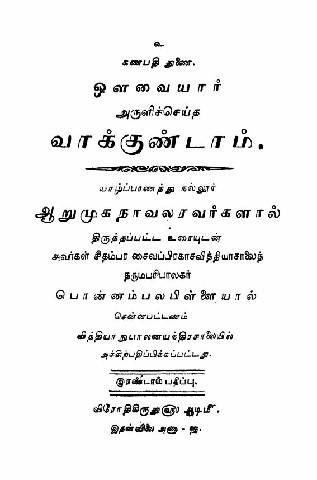 உ
கணபதி துணை.
ஔவையார்
அருளிச்செய்த
வாக்குண்டாம்.
யாழ்ப்பாணத்து நல்லூர்
ஆறுமுகநாவலரவர்களால்
திருத்தப்பட்ட உரையுடன்
அவர்கள் சிதம்பர சைவப்பிரகாசவித்தியாசாலைத்
தருமபரிபாலகர்
பொன்னம்பலபிள்ளையால்
சென்னபட்டணம்
வித்தியாநுபாலனயந்திரசாலையில்
அச்சிற்பதிப்பிக்கப்பட்டது.
இரண்டாம்பதிப்பு.
விரோதிகிருது௵ ஆடி௴.
இதன்விலை அணா - ௨.